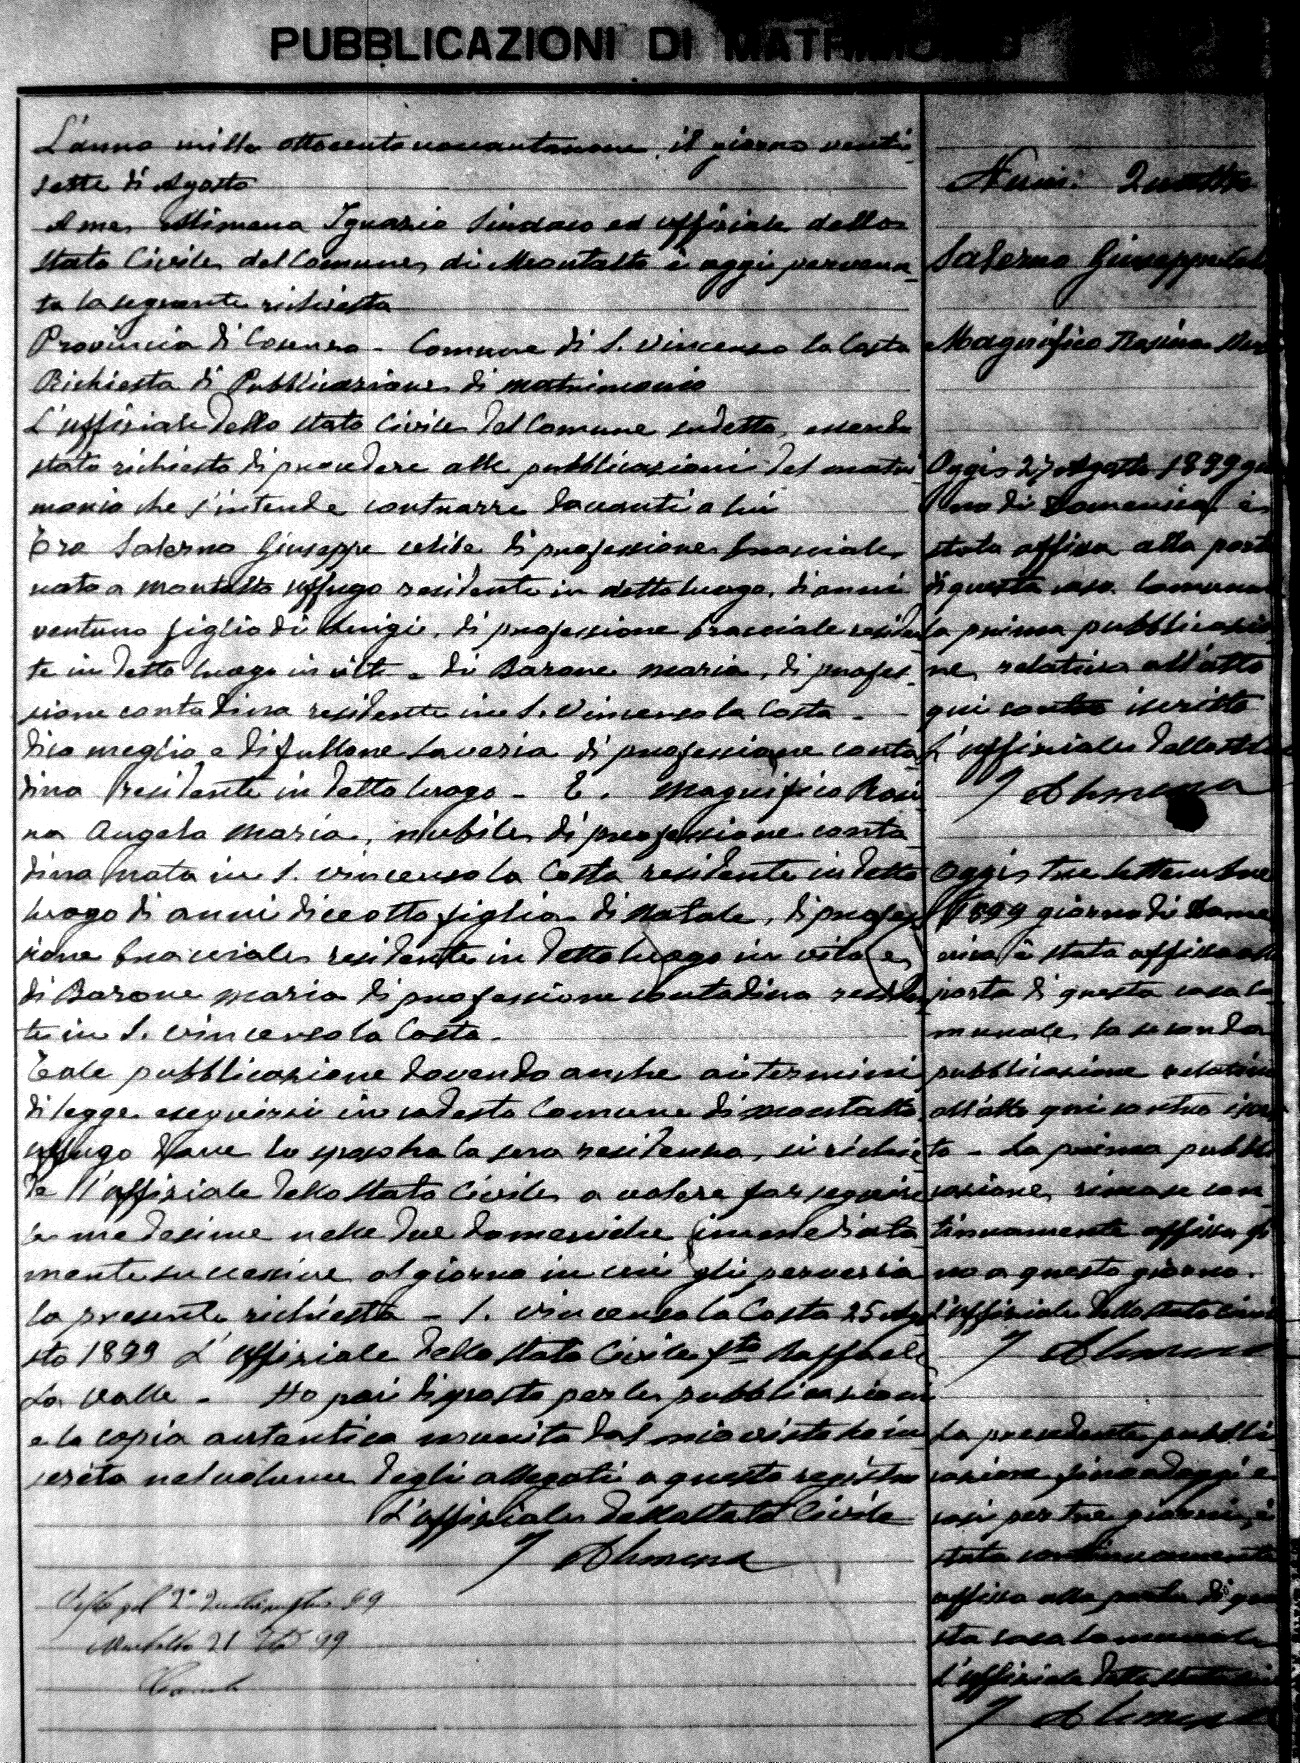 PUBBLICAZIONI DI MATRIMONIO
L'anno mille ottocentonovantanove, il giorno venti
sette di Agosto
A me, Alimena Ignazio Sindaco ed uffiziale dello
Stato Civile del Comune di Montalto è oggi pervenu-
ta la seguente richiesta
Provincia di Cosenza - Comune di S. Vincenzo la Costa
Richiesta di Pubblicazione di matrimonio
L'uffiziale dello stato Civile del Comune sudetto, essendo
stato richiesto di procedere alle pubblicazioni del matri
monio che s'intende contrarre davanti a lui
Tra Salerno Giuseppe celibe di professione bracciale,
nato a Montalto uffugo residente in detto luogo, di anni
ventuno figlio di Luigi, di professione bracciale residen
te in detto luogo in vita e di Barone Maria, di profes-
sione contadina residente in S. Vincenzo la Costa -
dico meglio e di fullone Saveria di professione conta
dina residente in detto luogo - E. Magnifico Rosi
na Angela Maria, nubile, di professione conta
dina nata in S. Vincenzo la Costa residente in detto
luogo di anni diceotto figlia di Natale, di profes
sione bracciale residente in detto luogo in vita e
di Barone Maria di professione contadina residen
te in S. Vincenzo la Costa.
Tale pubblicazione dovendo anche ai termini
di legge eseguirsi in codesto Comune di Montalto
uffugo dove lo sposo ha la sua residenza, si richie
de l'uffiziale dello stato Civile, a volere far seguire
le medesime nelle due domeniche immediata
mente successive al giorno in cui gli perverrà
la presente richiesta - S. Vincenzo la Costa 25 Ago
sto 1899 L'uffiziale dello stato Civile fto Raffaele
La Valle - Ho poi disposto per le pubblicazioni
e la copia autentica munita dal mio visto ho in
serita nel volume degli allegati a questo registro
L'uffiziale dello stato Civile
I Alimena
Visto pel 2° quadrimestre 99
Montalto 21 99
Num. Quattro
Salerno Giuseppe
Magnifico Rosina
Oggi 27 Agosto 1899 gi
no di Domenica, è
stata affissa alla porta
di questa casa Comuna
la prima pubblicazio
ne, relativa all'atto
qui contro iscritto
L'uffiziale dello
I Alimena
Oggi tre Settembre
1899 giorno di Dome
nica è stata affissa all
porta di questa casa Co
munale, la seconda
pubblicazione relativa
all'atto qui contro iscri
to - La prima pubbli
cazione, rimase con
tinuamente affissa fi
no a questo giorno.
L'uffiziale dello stato Civi
I Alimena
La precedente pubbli
cazione fino ad oggi e
così per tre giorni, è
stata continuamente
affissa alla porta di que
sta casa Comunale
L'uffiziale dello stato
I Alimena